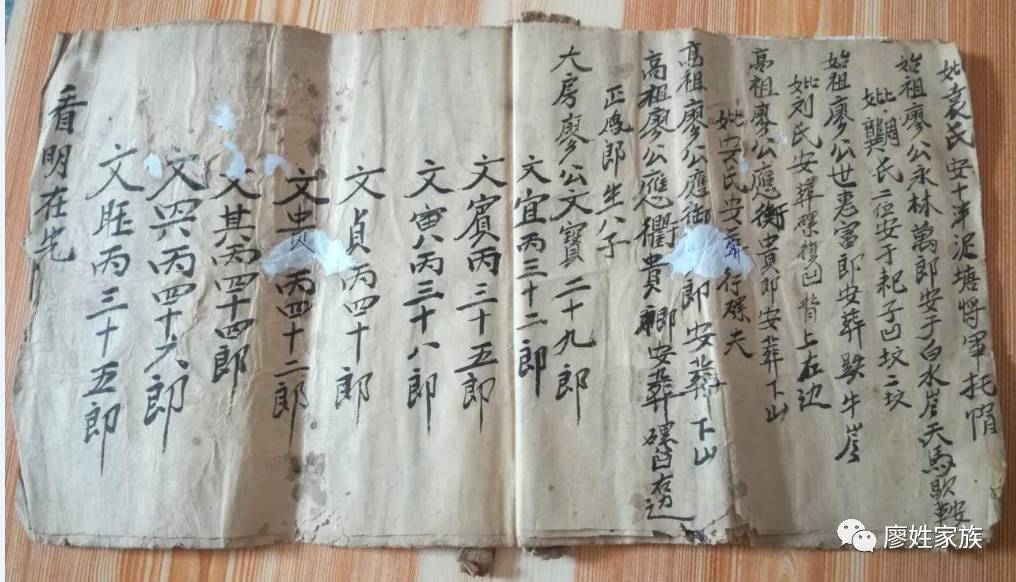 妣袁氏安十洋泥塘将軍托帽
始祖廖公永林萬郎安于白水岩天馬歇
妣龔氏二位安于耙子凹坟二坟
始祖廖公世惠富郎安葬跌牛岩
妣刘氏安葬磜復凹背上左边
高祖廖公應衡贵郎安葬下山
妣安氏安葬行磜夫
高祖廖公應御郎安葬下山
高祖廖公應衢貴卿安葬磜凹右边
正鳳郎生八子
大房廖公文寶二十九郎
文宜丙三十二郎
文賓丙三十五郎
文寅丙三十八郎
文貞丙四十郎
文忠丙四十二郎
文其丙四十四郎
文兴丙四十六郎
文旺丙三十五郎
看明在先
廖姓家族